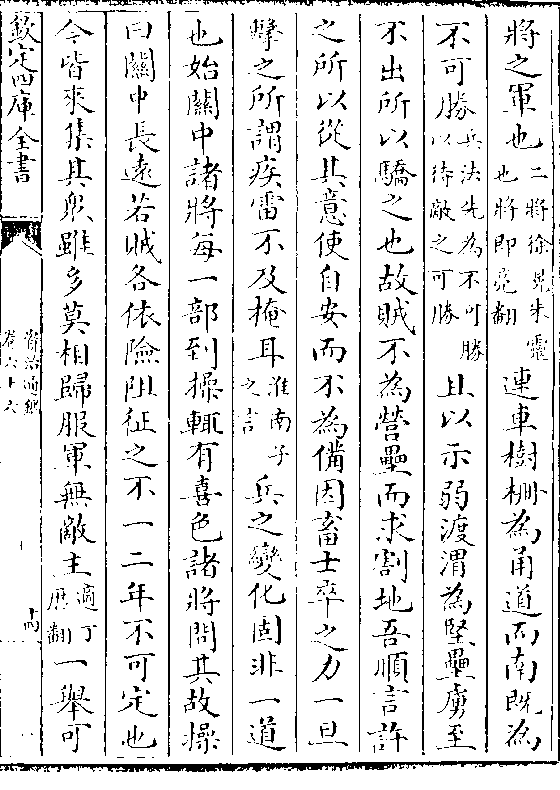 將之軍也二將徐晃朱靈也將即亮翻連車樹柵為甬道而南既為
不可勝兵法先為不可勝以待敵之可勝且以示弱渡渭為堅壘虜至
不出所以驕之也故賊不為營壘而求割地吾順言許
之所以從其意使自安而不為備因畜士卒之力一旦
擊之所謂疾雷不及掩耳淮南子之言兵之變化固非一道
也始關中諸將每一部到操輒有喜色諸將問其故操
曰關中長逺若賊各依險阻征之不一二年不可定也
今皆來集其衆雖多莫相歸服軍無敵主適丁歴翻一舉可
欽定四庫全書
資治通鑑
卷六十六
十四